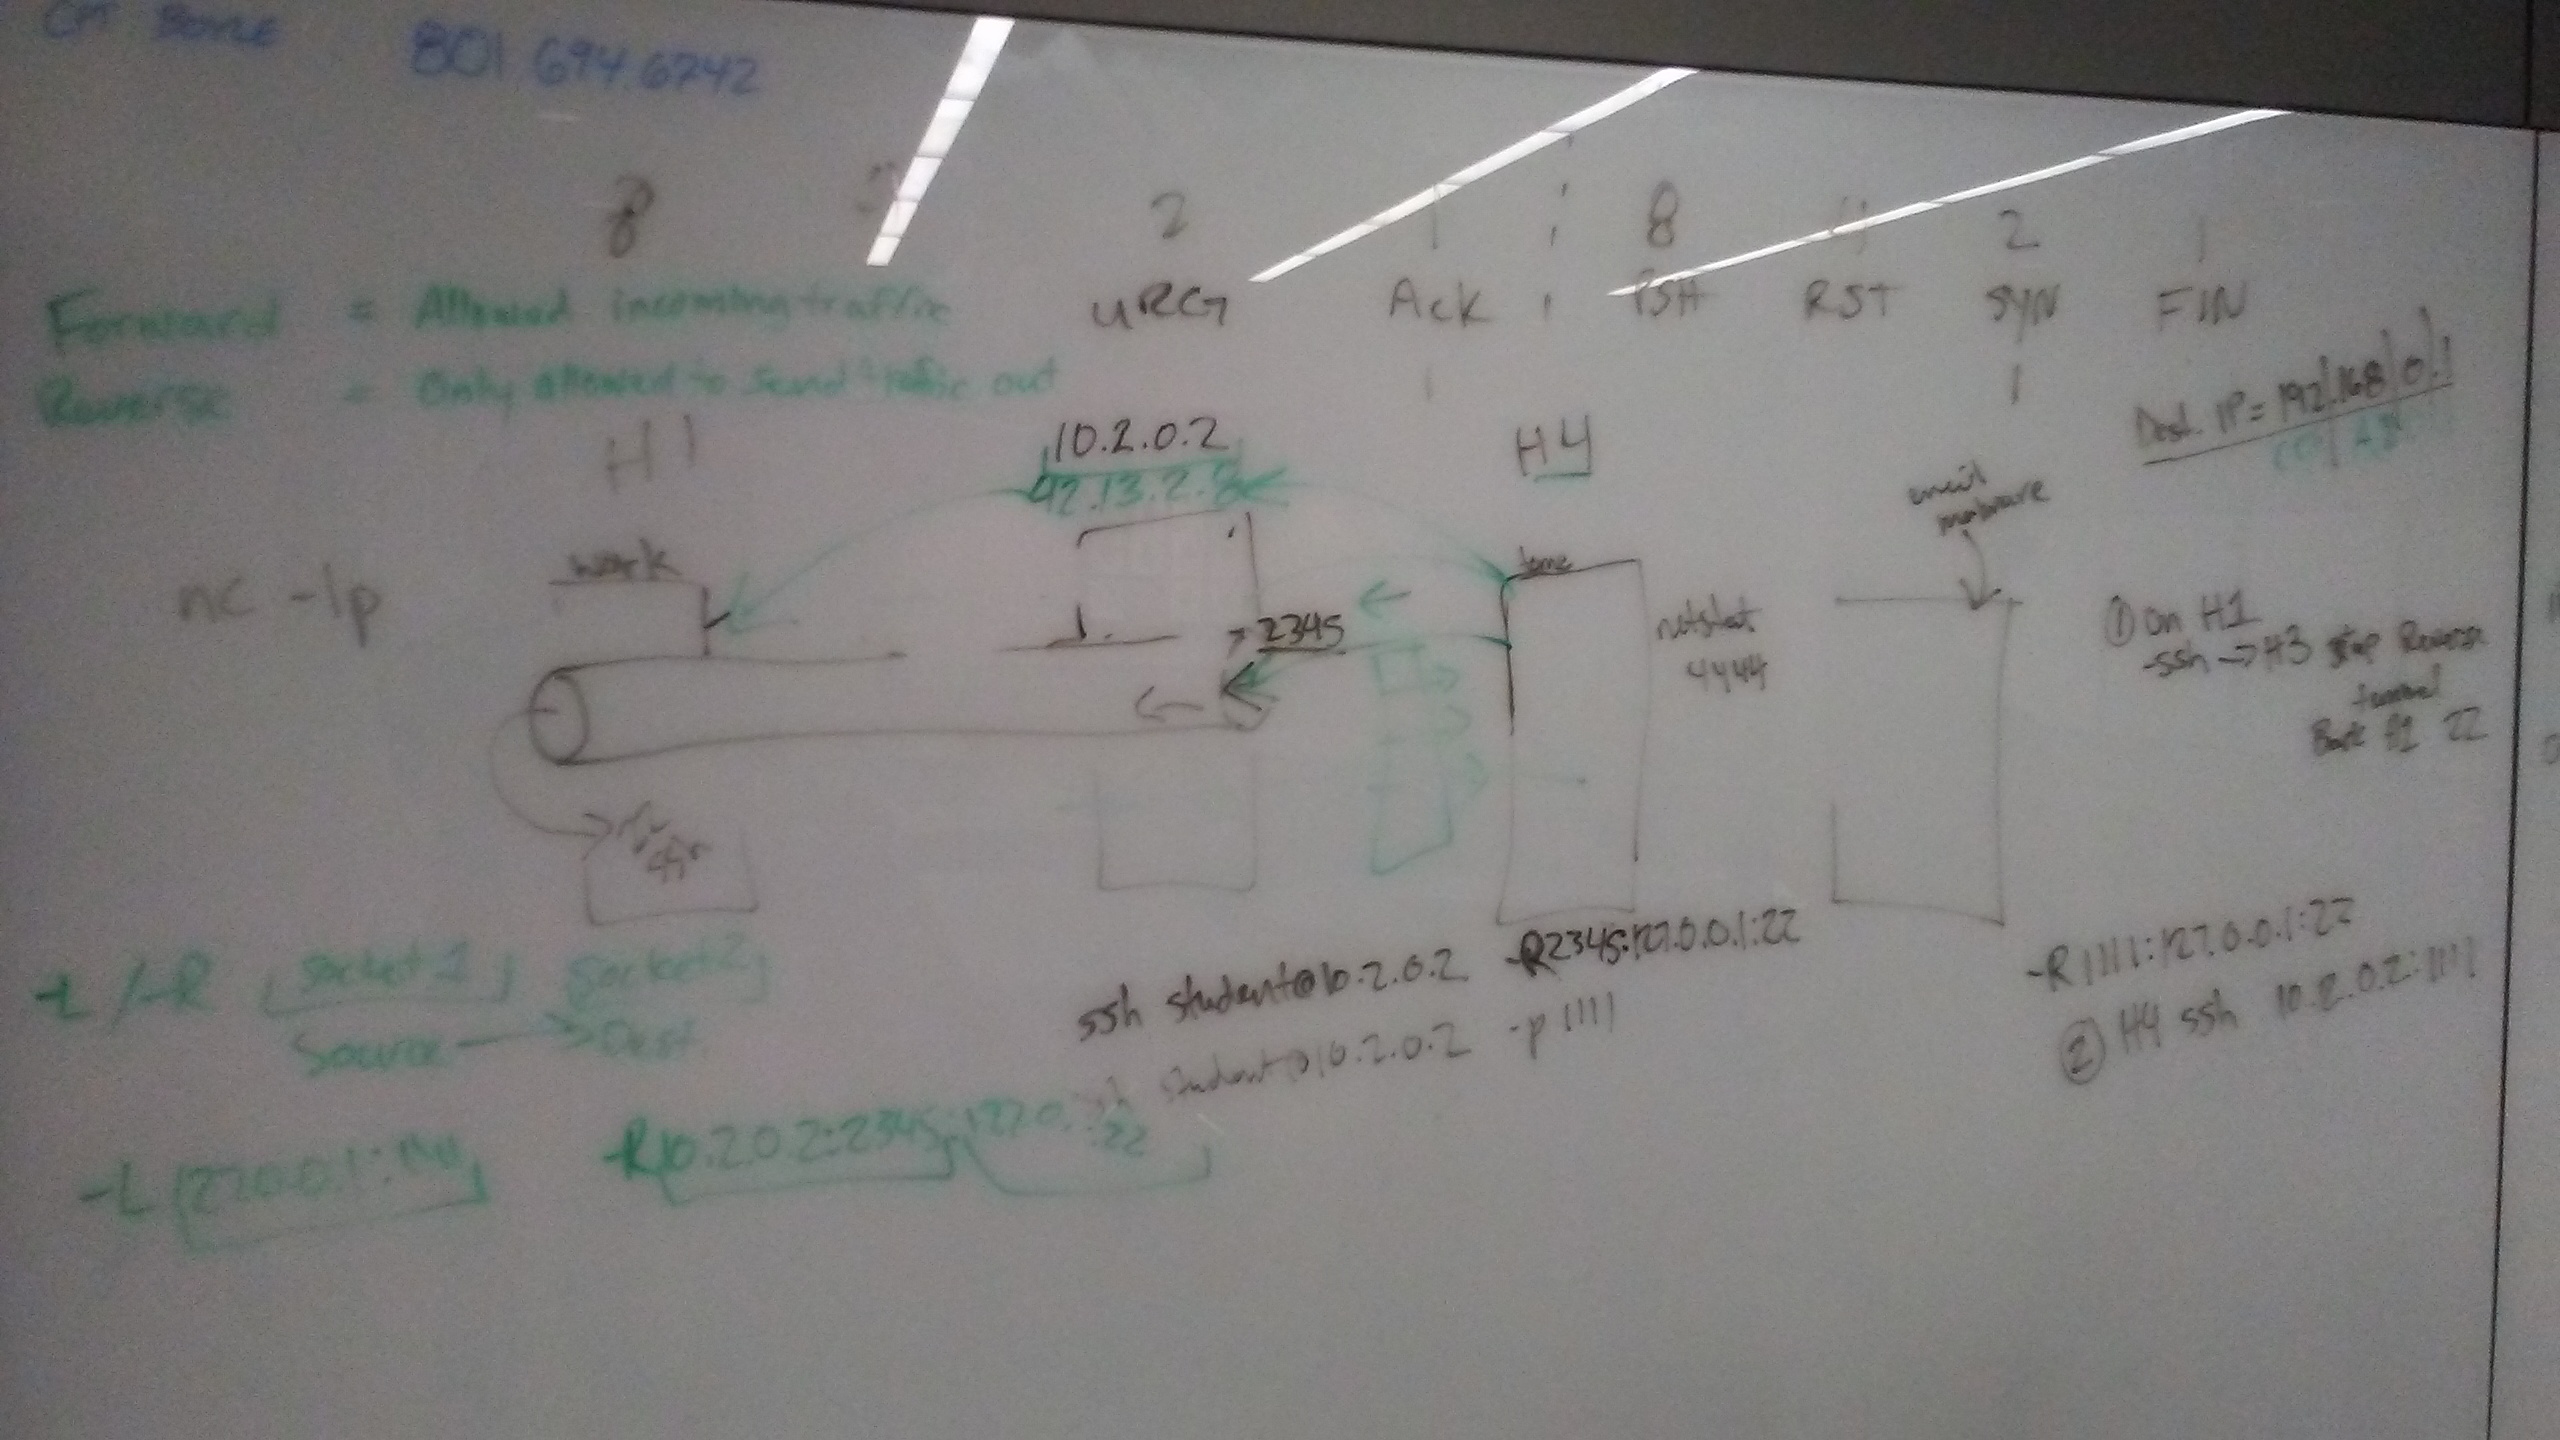 801 694.6742
8 2 1 8 4 2 1
URG Ack PSH RST SYN FIN
1 1
Forward = Allowed incoming traffic
Reverse = Only allowed to send traffic out
Dest. IP = 192.168.0.1
H1
10.2.0.2
42.13.2.8
H4
email
malware
work
home
nc -lp
2345
netstat
4444
① On H1
-ssh → H3 Reverse
tunnel
Back H1 22
-L / -R Socket1 Socket2
Source → Dest.
ssh student@10.2.0.2 -R2345:127.0.0.1:22
student@10.2.0.2 -p 1111
-R1111:127.0.0.1:22
② H4 ssh 10.2.0.2:1111
-L 127.0.0.1:
-R10.2.0.2:2345:127.0.
:22